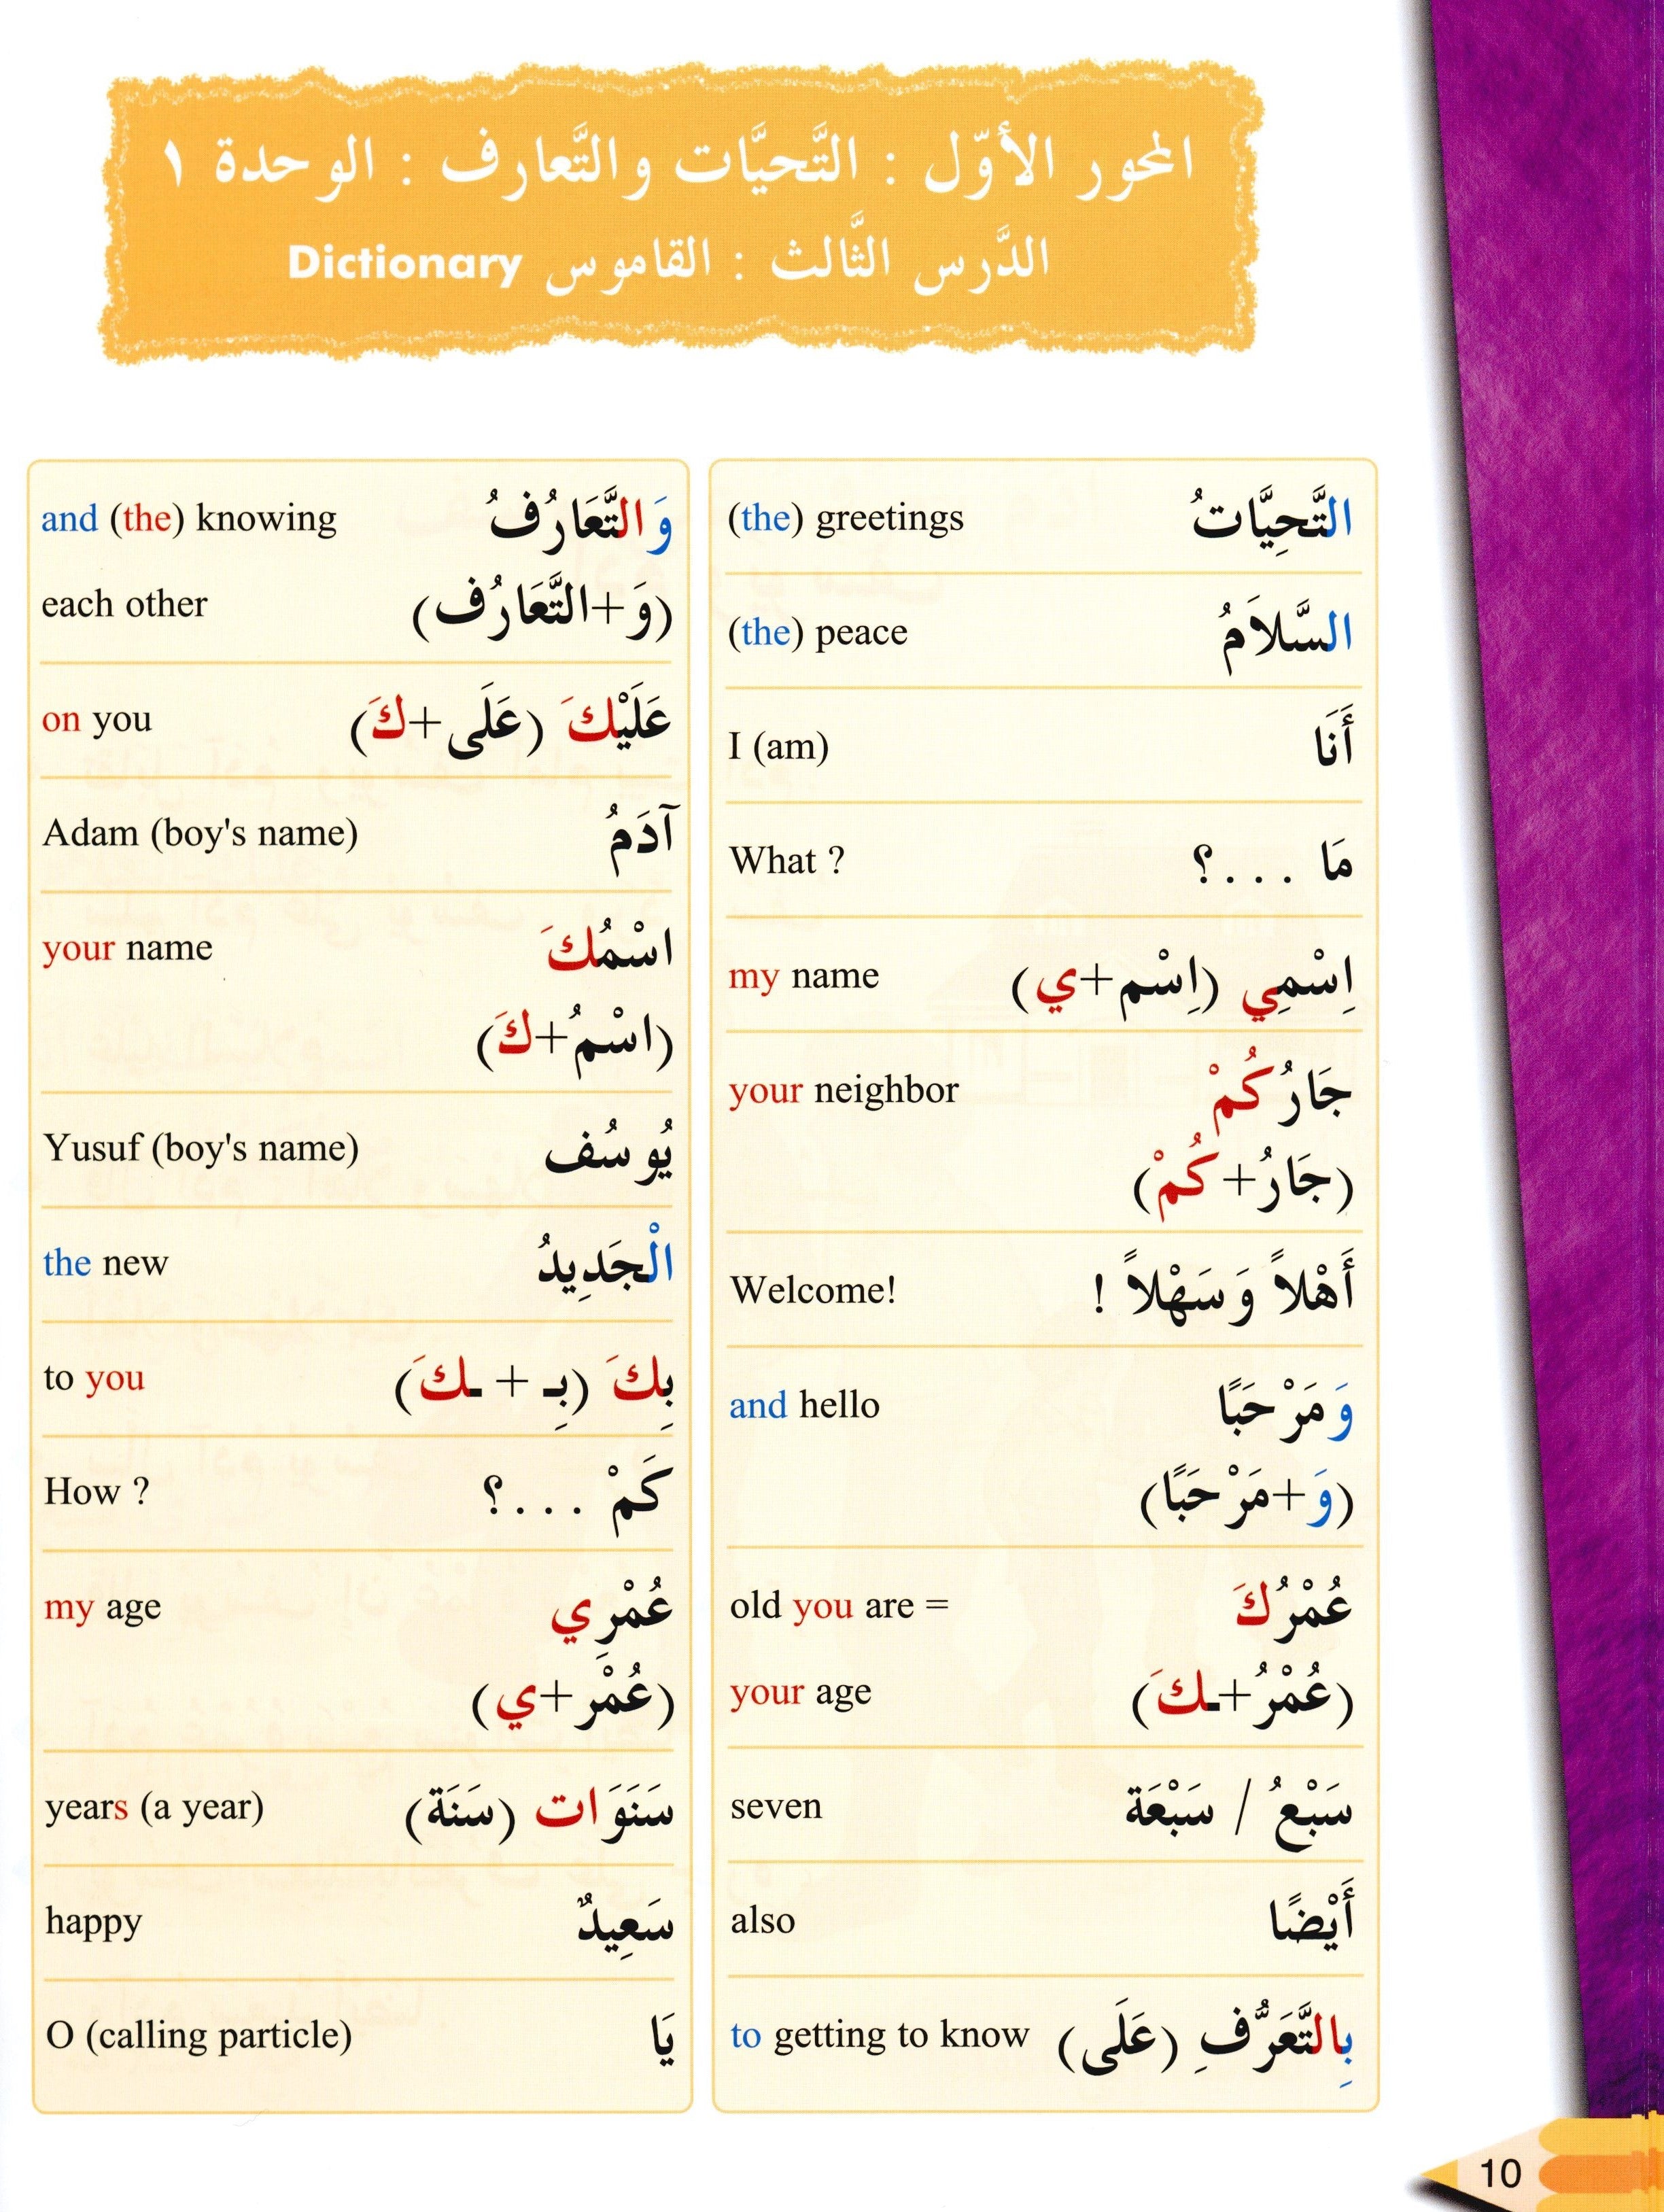 المحور الأوّل : التَّحيَّات والتَّعارف : الوحدة ١
الدَّرس الثَّالث : القاموس Dictionary
(the) greetings التَّحِيَّاتُ
(the) peace السَّلاَمُ
I (am) أَنَا
What ? مَا . . . ؟
my name اِسْمِي (اِسْم+ي)
your neighbor جَارُكُمْ
(جَارُ+كُمْ)
Welcome! أَهْلاً وَسَهْلاً !
and hello وَمَرْحَبًا
(وَ+مَرْحَبًا)
old you are = عُمْرُكَ
your age (عُمْرُ+ـكَ)
seven سَبْعُ / سَبْعَة
also أَيْضًا
to getting to know بِالتَّعَرُّفِ (عَلَى)
and (the) knowing وَالتَّعَارُفُ
each other (وَ+التَّعَارُف)
on you عَلَيْكَ (عَلَى+كَ)
Adam (boy's name) آدَمُ
your name اسْمُكَ
(اسْمُ+كَ)
Yusuf (boy's name) يُوسُف
the new الْجَدِيدُ
to you بِكَ (بِـ + ـكَ)
How ? كَمْ . . . ؟
my age عُمْرِي
(عُمْر+ي)
years (a year) سَنَوَات (سَنَة)
happy سَعِيدٌ
O (calling particle) يَا
10